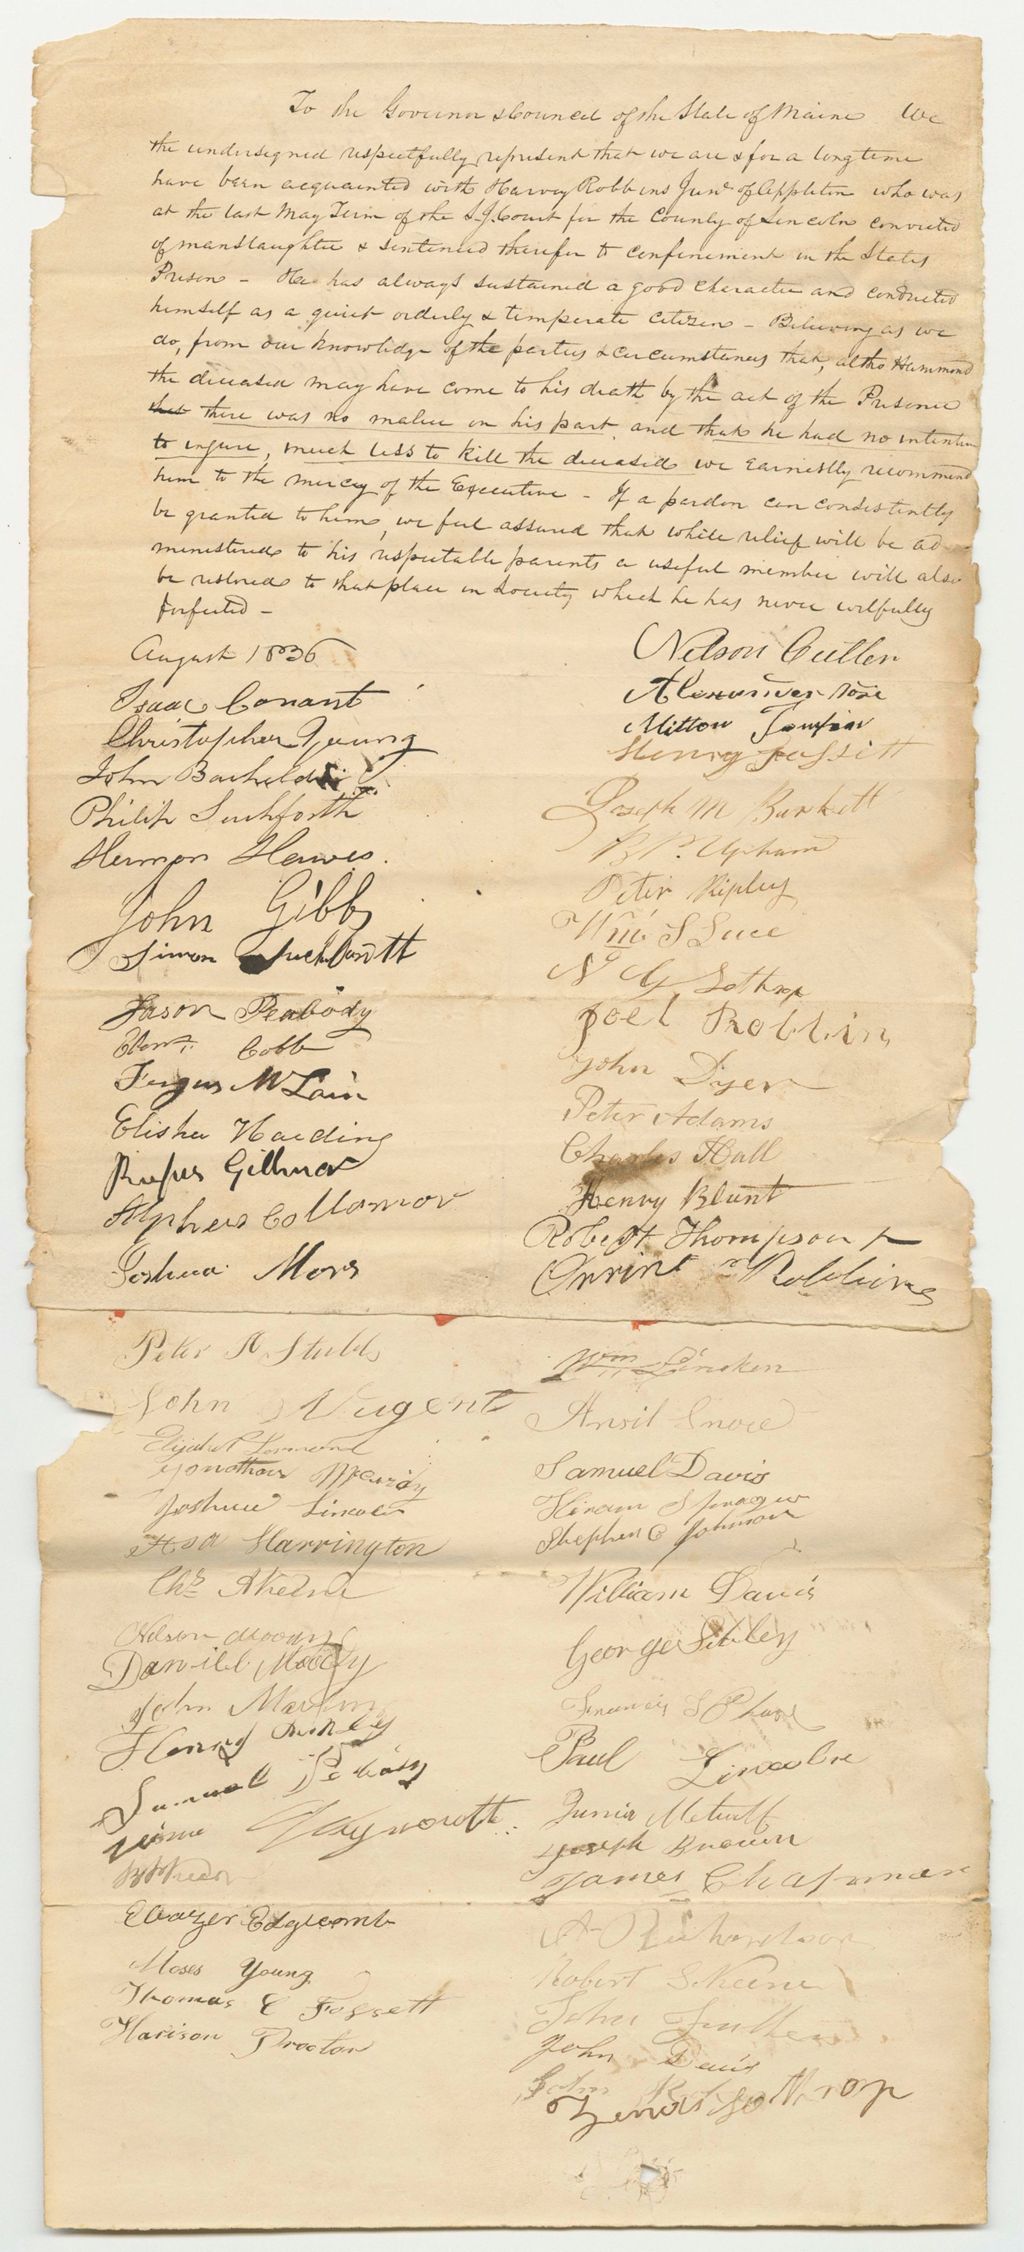 To the Governor & Council of the State of Maine We
the undersigned respectfully represent that we are & for a long time
have been acquainted with Harvey Robbins Junr of Appleton who was
at the last May Term of the S. J. Court for the County of Lincoln convicted
of manslaughter & sentenced therefor to confinement in the States
Prison - He has always sustained a good character and conducted
himself as a quiet orderly & temperate citizen - Believing as we
do, from our knowledge of the parties & circumstances that, altho Hammond
the deceased may have come to his death by the act of the Prisoner
that there was no malice on his part and that he had no intention
to injure, much less to kill the deceased we earnestly recommend
him to the mercy of the Executive - If a pardon can consistently
be granted to him, we feel assured that while relief will be ad
ministered to his respectable parents a useful member will also
be restored to that place in Society which he has never wilfully
forfeited -
August 1836
Isaac Conant
Christopher Young
John Bachelder
Philip Linkforth
Hermon Hawes.
John Gibbs
Simon
Jason Peabody
Cobb
Fergus McLain
Elisha Harding
Rufus Gillmor
Alpheus Collamor
Joshua Mors
Nelson Cutler
Milton
Henry Fassett
Joseph M Burkett
B P. Upham
Peter Ripley
Wm S Luce
N G Lothrop
Joel Robbins
John Dyer
Peter Adams
Charles Hall
Henry Blunt
Robert Thompson
Orrin Robbins
Peter A Stubbs
John Nugent
Elijah
Jonathan McCurdy
Joshua Lincoln
Asa Harrington
Chs
Nelson Moody
Daniell Moody
John
Henry
Samuel
Eleazer Edgecomb
Moses Young
Thomas C Fossett
Harison Procton
Wm
Ansil Snow
Samuel Davis
Hiram Sprague
Stephen C Johnson
William Davis
George Sibley
Francis
Paul Lincolne
Junia Metcalf
Joseph Brown
James Chapman
A Richardson
Robert Skeene
John
John Davis
John
Zenas Lothrop